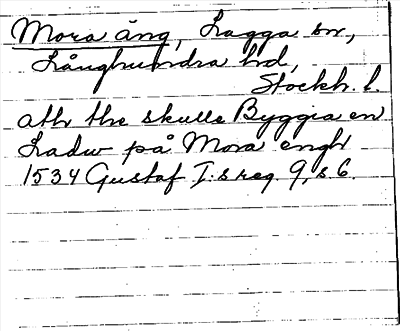 Mora äng, Lagga sn,
Långhundra hd,
Stockh. l.
ath the skulle Byggia en
Ladw på Mora engh
1534 Gustaf I:s reg. 9, s 6.